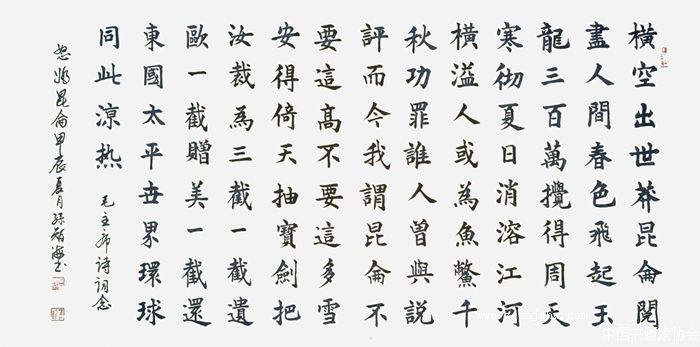 橫空出世莽昆侖閱
盡人間春色飛起玉
龍三百萬攪得周天
寒彻夏日消溶江河
橫溢人或為魚鱉千
秋功罪誰人曾與説
評而今我謂昆侖不
要這髙不要這多雪
安得倚天抽寶劍把
汝裁為三截一截遺
歐一截贈美一截還
東國太平世界環球
同此涼热
毛主席诗词念
奴嬌昆侖甲辰夏月
中国书画家协会